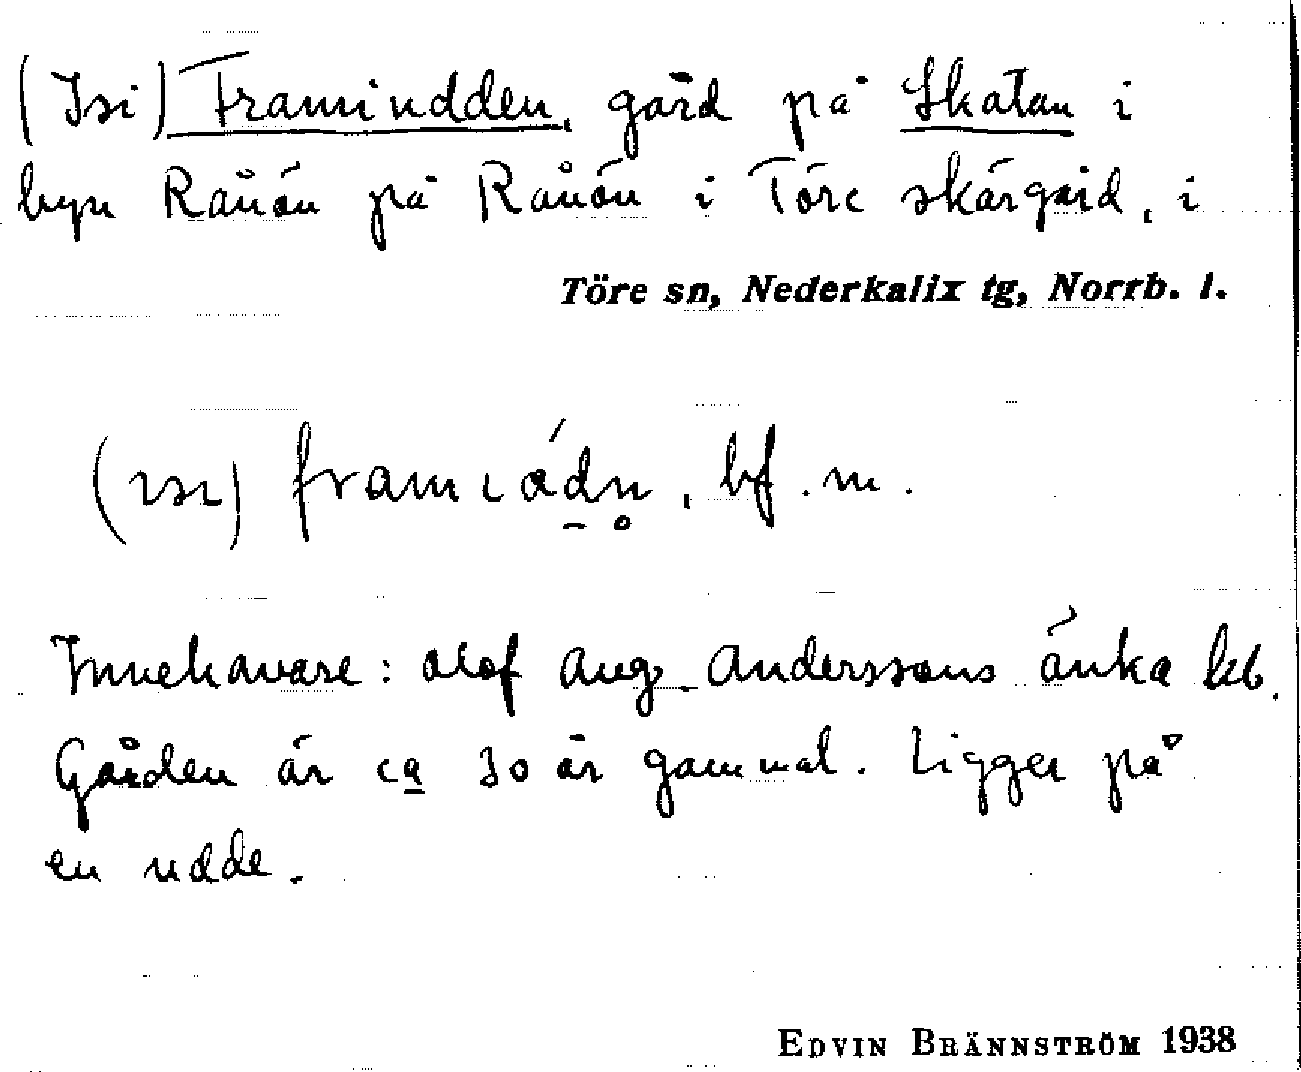 (Isi) Framiudden, gård på Skatan i
byn Rånön på Rånön i Töre skärgård, i
Töre sn, Nederkalix tg, Norrb. l.
(ɪsɪ) framɪádn̥, bf. m.
Innehavare: Olof Aug. Anderssons änka kb.
Gården är ca 30 år gammal. Ligger på
en udde.
EDVIN BRÄNNSTRÖM 1938